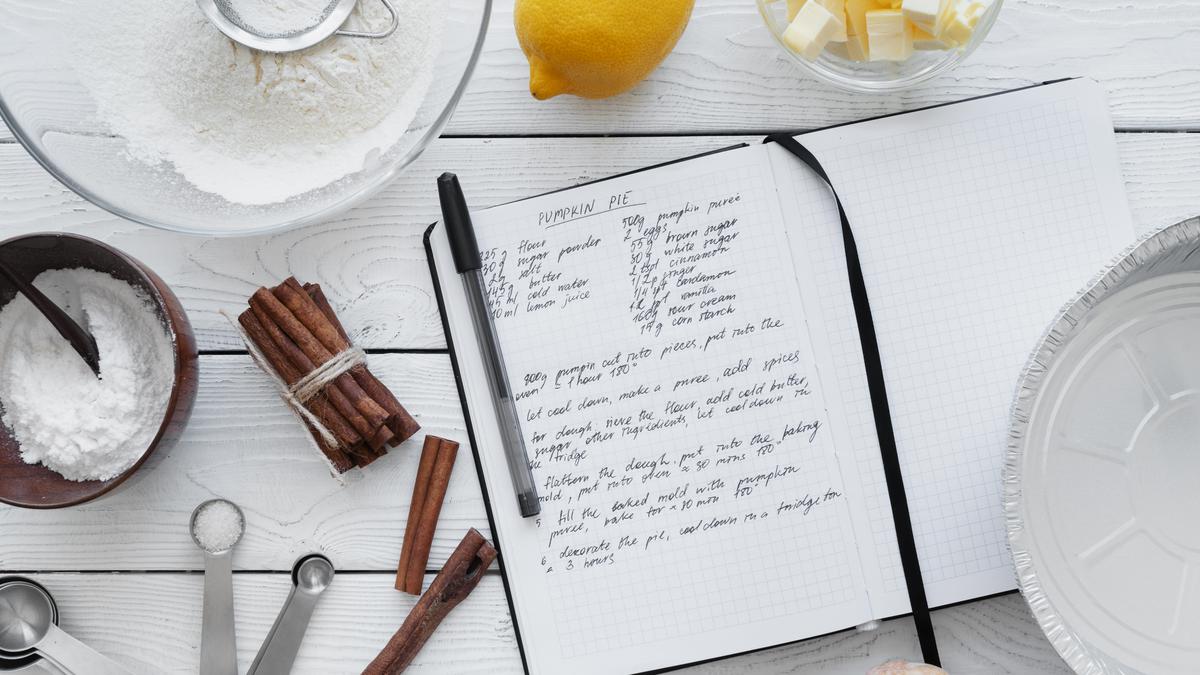 PUMPKIN PIE
225 g flour
30 g sugar powder
2g salt
145g butter
45 ml cold water
10 ml lemon juice
500g pumpkin puree
2 eggs
55 g brown sugar
30 g white sugar
2 tspl cinnamon
1/2 p ginger
1/4 spt cardamon
spt vanilla
160g sour cream
15 g corn starch
800g pumpin cut into pieces, put into the
oven ≈ 1 hour 180°
let cool down, make a puree, add spices
for dough, sieve the flour, add cold butter,
sugar other ingridients, let cool down in
the fridge
flattern the dough, put into the baking
mold, put into oven ≈ 30 mins 180°
5 fill the baked mold with pumpkin
puree, bake for ≈ 80 min 180°
6 decorate the pie, cool down in a fridge for
≈ 3 hours